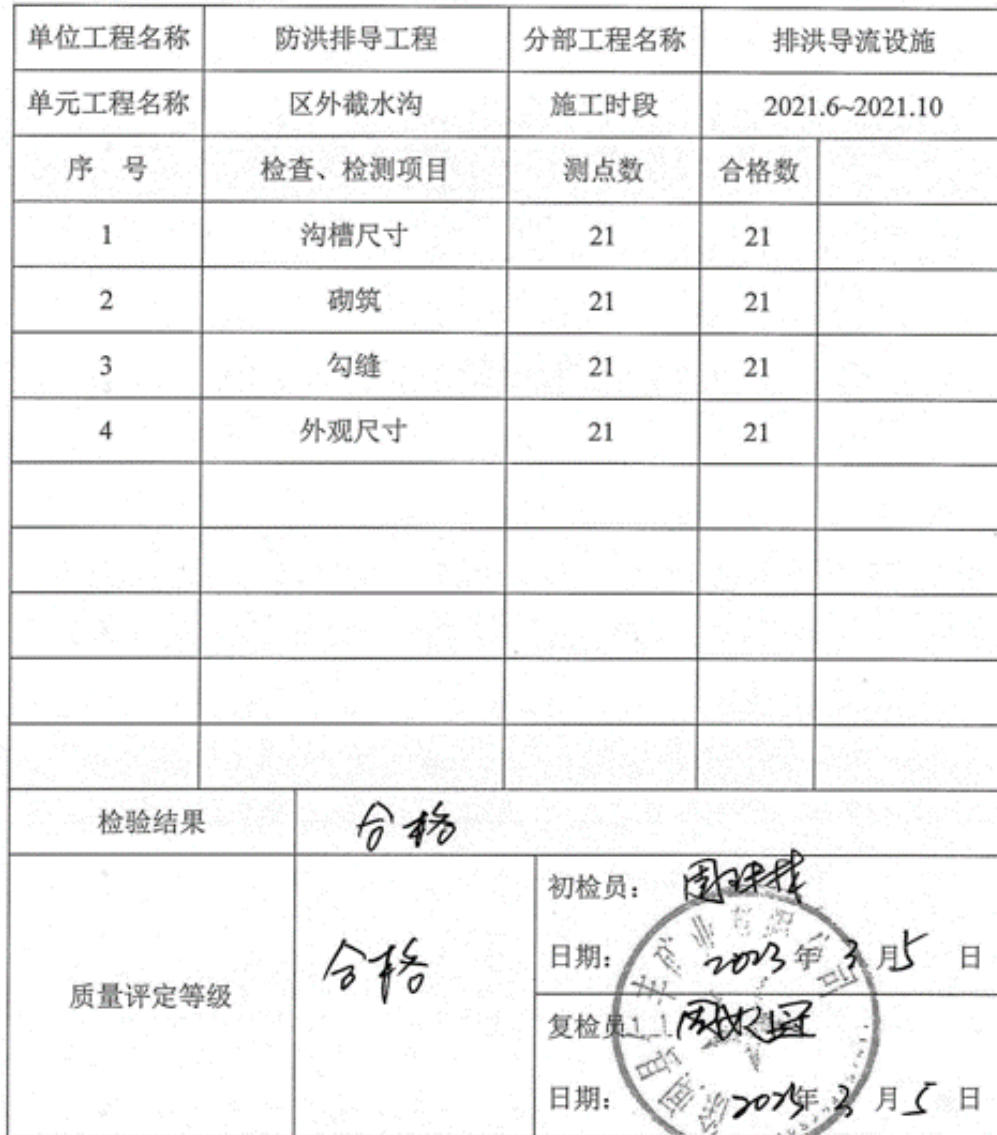 单位工程名称 防洪排导工程 分部工程名称 排洪导流设施
单元工程名称 区外截水沟 施工时段 2021.6~2021.10
序 号 检查、检测项目 测点数 合格数
1 沟槽尺寸 21 21
2 砌筑 21 21
3 勾缝 21 21
4 外观尺寸 21 21
检验结果 合格
质量评定等级 合格
初检员：
日期： 2023 年 3 月 5 日
复检员
日期： 2023 年 3 月 5 日
矿业有限公司